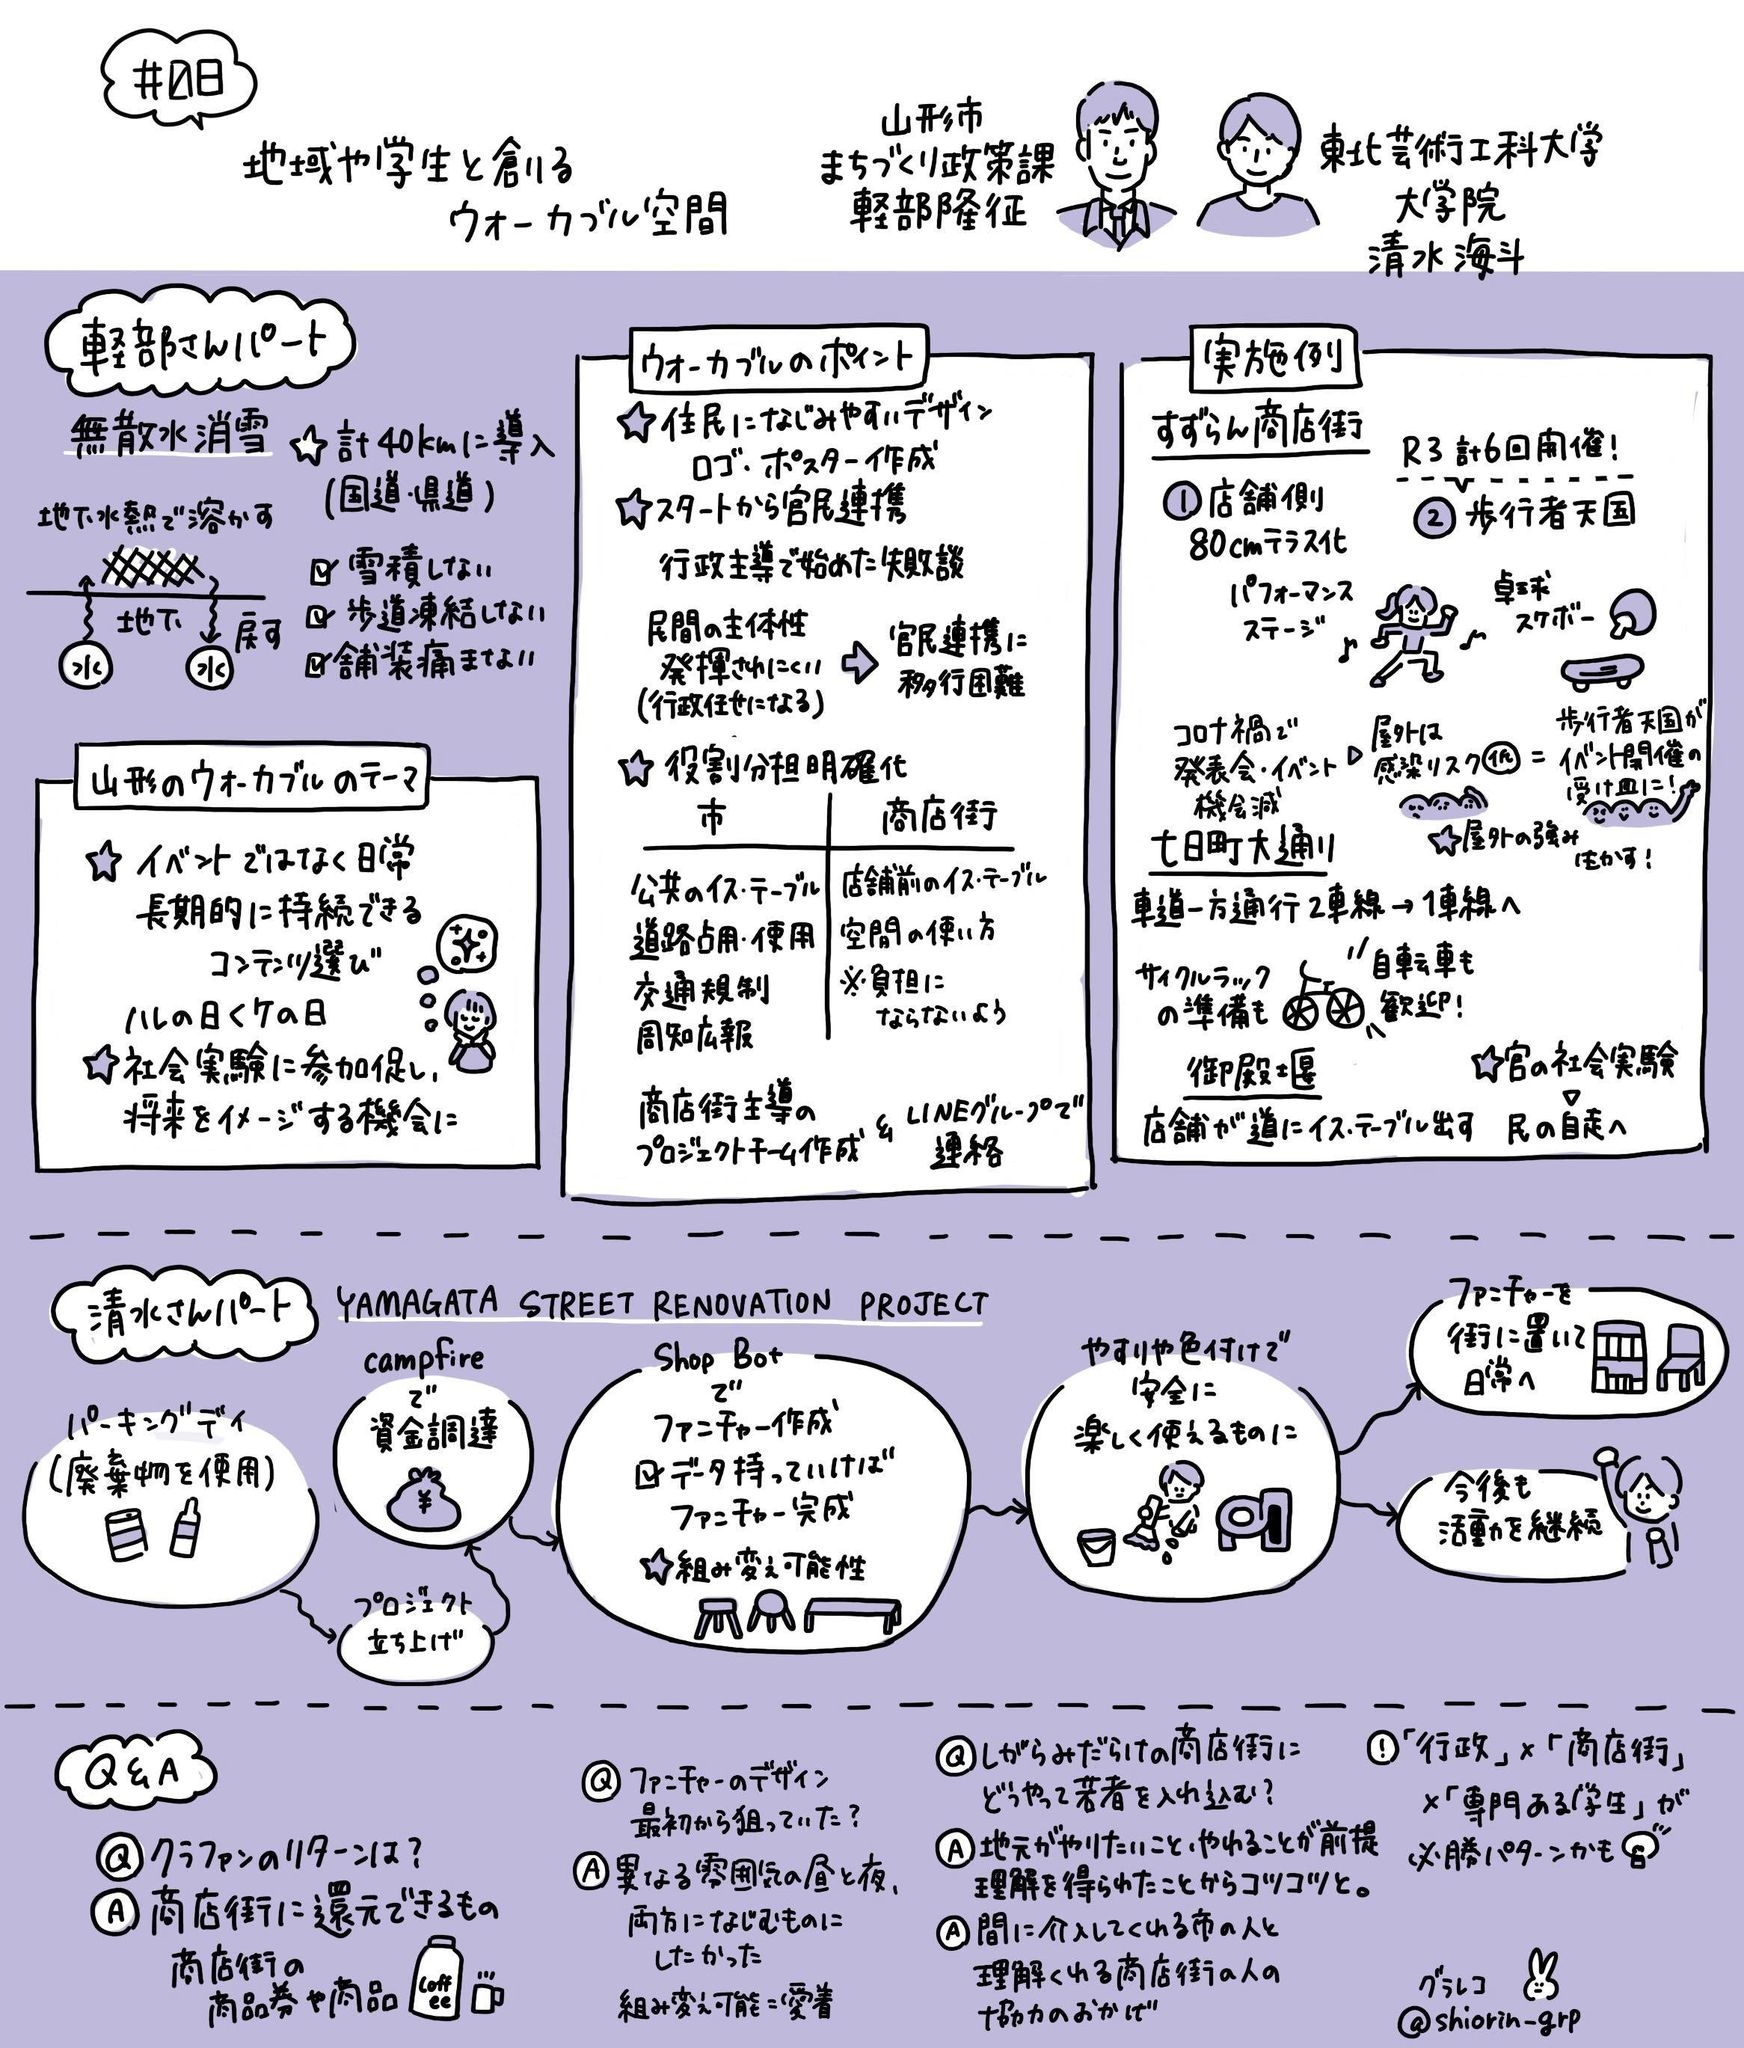 #08
地域や学生と創る
ウォーカブル空間
山形市
まちづくり政策課
軽部隆征
東北芸術工科大学
大学院
清水海斗
軽部さんパート
無散水消雪
☆計40kmに導入
(国道・県道)
地下水熱で溶かす
地下
戻す
水
水
☑雪積もしない
☑歩道凍結しない
☑舗装痛まない
山形のウォーカブルのテーマ
☆イベントではなく日常
長期的に持続できる
コンテンツ選び
ハレの日<ケの日
☆社会実験に参加促し、
将来をイメージする機会に
ウォーカブルのポイント
☆住民になじみやすいデザイン
ロゴ・ポスター作成
☆スタートから官民連携
行政主導で始めた失敗談
民間の主体性
発揮されにくい
(行政任せになる)
官民連携に
移行困難
☆役割分担明確化
市
商店街
公共のイス・テーブル
店舗前のイス・テーブル
道路占用・使用
空間の使い方
交通規制
※負担に
ならないよう
周知広報
商店街主導の
プロジェクトチーム作成
&
LINEグループで
連絡
実施例
すずらん商店街
R3計6回開催!
①店舗側
80cmテラス化
②歩行者天国
パフォーマンス
ステージ
卓球
スケボー
コロナ禍で
発表会・イベント
機会減
屋外は
感染リスク低
=
歩行者天国が
イベント開催の
受け皿に!
☆屋外の強み
生かす!
七日町大通り
車道一方通行2車線→1車線へ
サイクルラック
の準備も
自転車も
歓迎!
御殿堰
店舗が道にイス・テーブル出す
☆官の社会実験
民の自走へ
清水さんパート
YAMAGATA STREET RENOVATION PROJECT
パーキングデイ
(廃棄物を使用)
プロジェクト
立ち上げ
campfire
で
資金調達
¥
Shop Bot
で
ファニチャー作成
☑データ持っていけば
ファニチャー完成
☆組み変え可能性
やすりや色付けで
安全に
楽しく使えるものに
ファニチャーを
街に置いて
日常へ
今後も
活動を継続
Q&A
Ⓠクラファンのリターンは?
Ⓐ商店街に還元できるもの
商店街の
商品券や商品
Coff
ee
Ⓠファニチャーのデザイン
最初から狙っていた?
Ⓐ異なる雰囲気の昼と夜、
両方になじむものに
したかった
組み変え可能=愛着
Ⓠしがらみだらけの商店街に
どうやって若者を入れ込む?
Ⓐ地元がやりたいこと、やれることが前提
理解を得られたことからコツコツと。
Ⓐ間に介入してくれる市の人と
理解くれる商店街の人の
協力のおかげ
!「行政」×「商店街」
×「専門ある学生」が
必勝パターンかも
グラレコ
@shiorin-grp